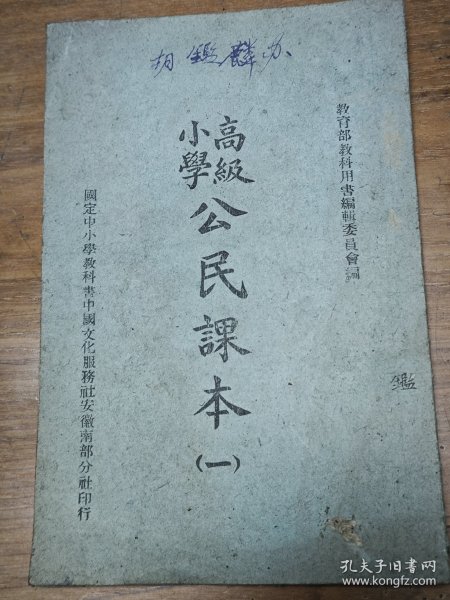 胡鑑麟办
教育部教科用書編輯委員會編
高級小學
公民課本(一)
國定中小學教科書中國文化服務社安徽南部分社印行
鑑
孔夫子旧书网
www.kongfz.com